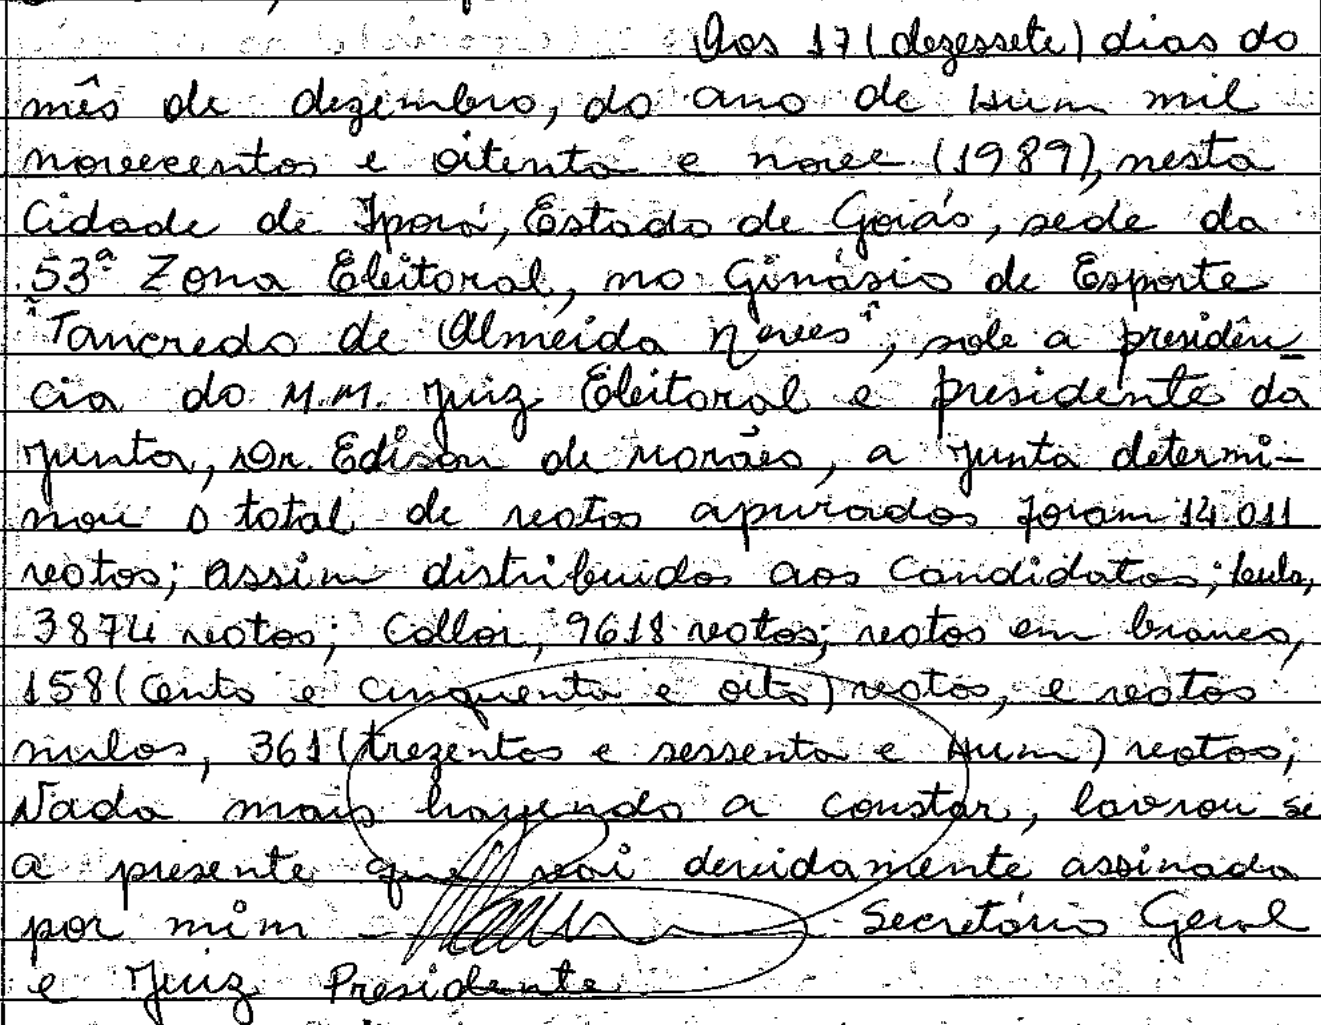 Aos 17 (dezessete) dias do
mês de dezembro, do ano de Hum mil
novecentos e oitenta e nove (1989), nesta
Cidade de Iporá, Estado de Goiás, sede da
53ª Zona Eleitoral, no Ginásio de Esporte
"Tancredo de Almeida Neves", sob a presidên
cia do M.M. Juiz Eleitoral e presidente da
Junta, Dr. Edison de Morães, a Junta determi-
nou o total de votos apurados foram 14.011
votos; assim distribuidos aos Candidatos; Lula,
3874 votos; Collor, 9618 votos; votos em branco,
158 (cento e cinquenta e oito) votos, e votos
nulos, 361 (trezentos e sessenta e Hum) votos;
Nada mais havendo a constar, lavrou-se
a presente que vai devidamente assinada
por mim Secretário Geral
e Juiz Presidente